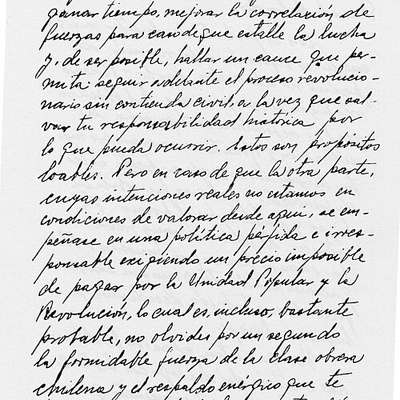 ganar tiempo, mejorar la correlación de
fuerzas para caso de que estalle la lucha
y, de ser posible, hallar un cauce que per-
mita seguir adelante el proceso revolucio-
nario sin contienda civil, a la vez que sal-
var tu responsabilidad histórica por
lo que pueda ocurrir. Estos son propósitos
loables. Pero en caso de que la otra parte,
cuyas intenciones reales no estamos en
condiciones de valorar desde aquí, se em-
peñase en una política pérfida e irres-
ponsable exigiendo un precio imposible
de pagar por la Unidad Popular y la
Revolución, lo cual es, incluso, bastante
probable, no olvides por un segundo
la formidable fuerza de la clase obrera
chilena y el respaldo enérgico que te